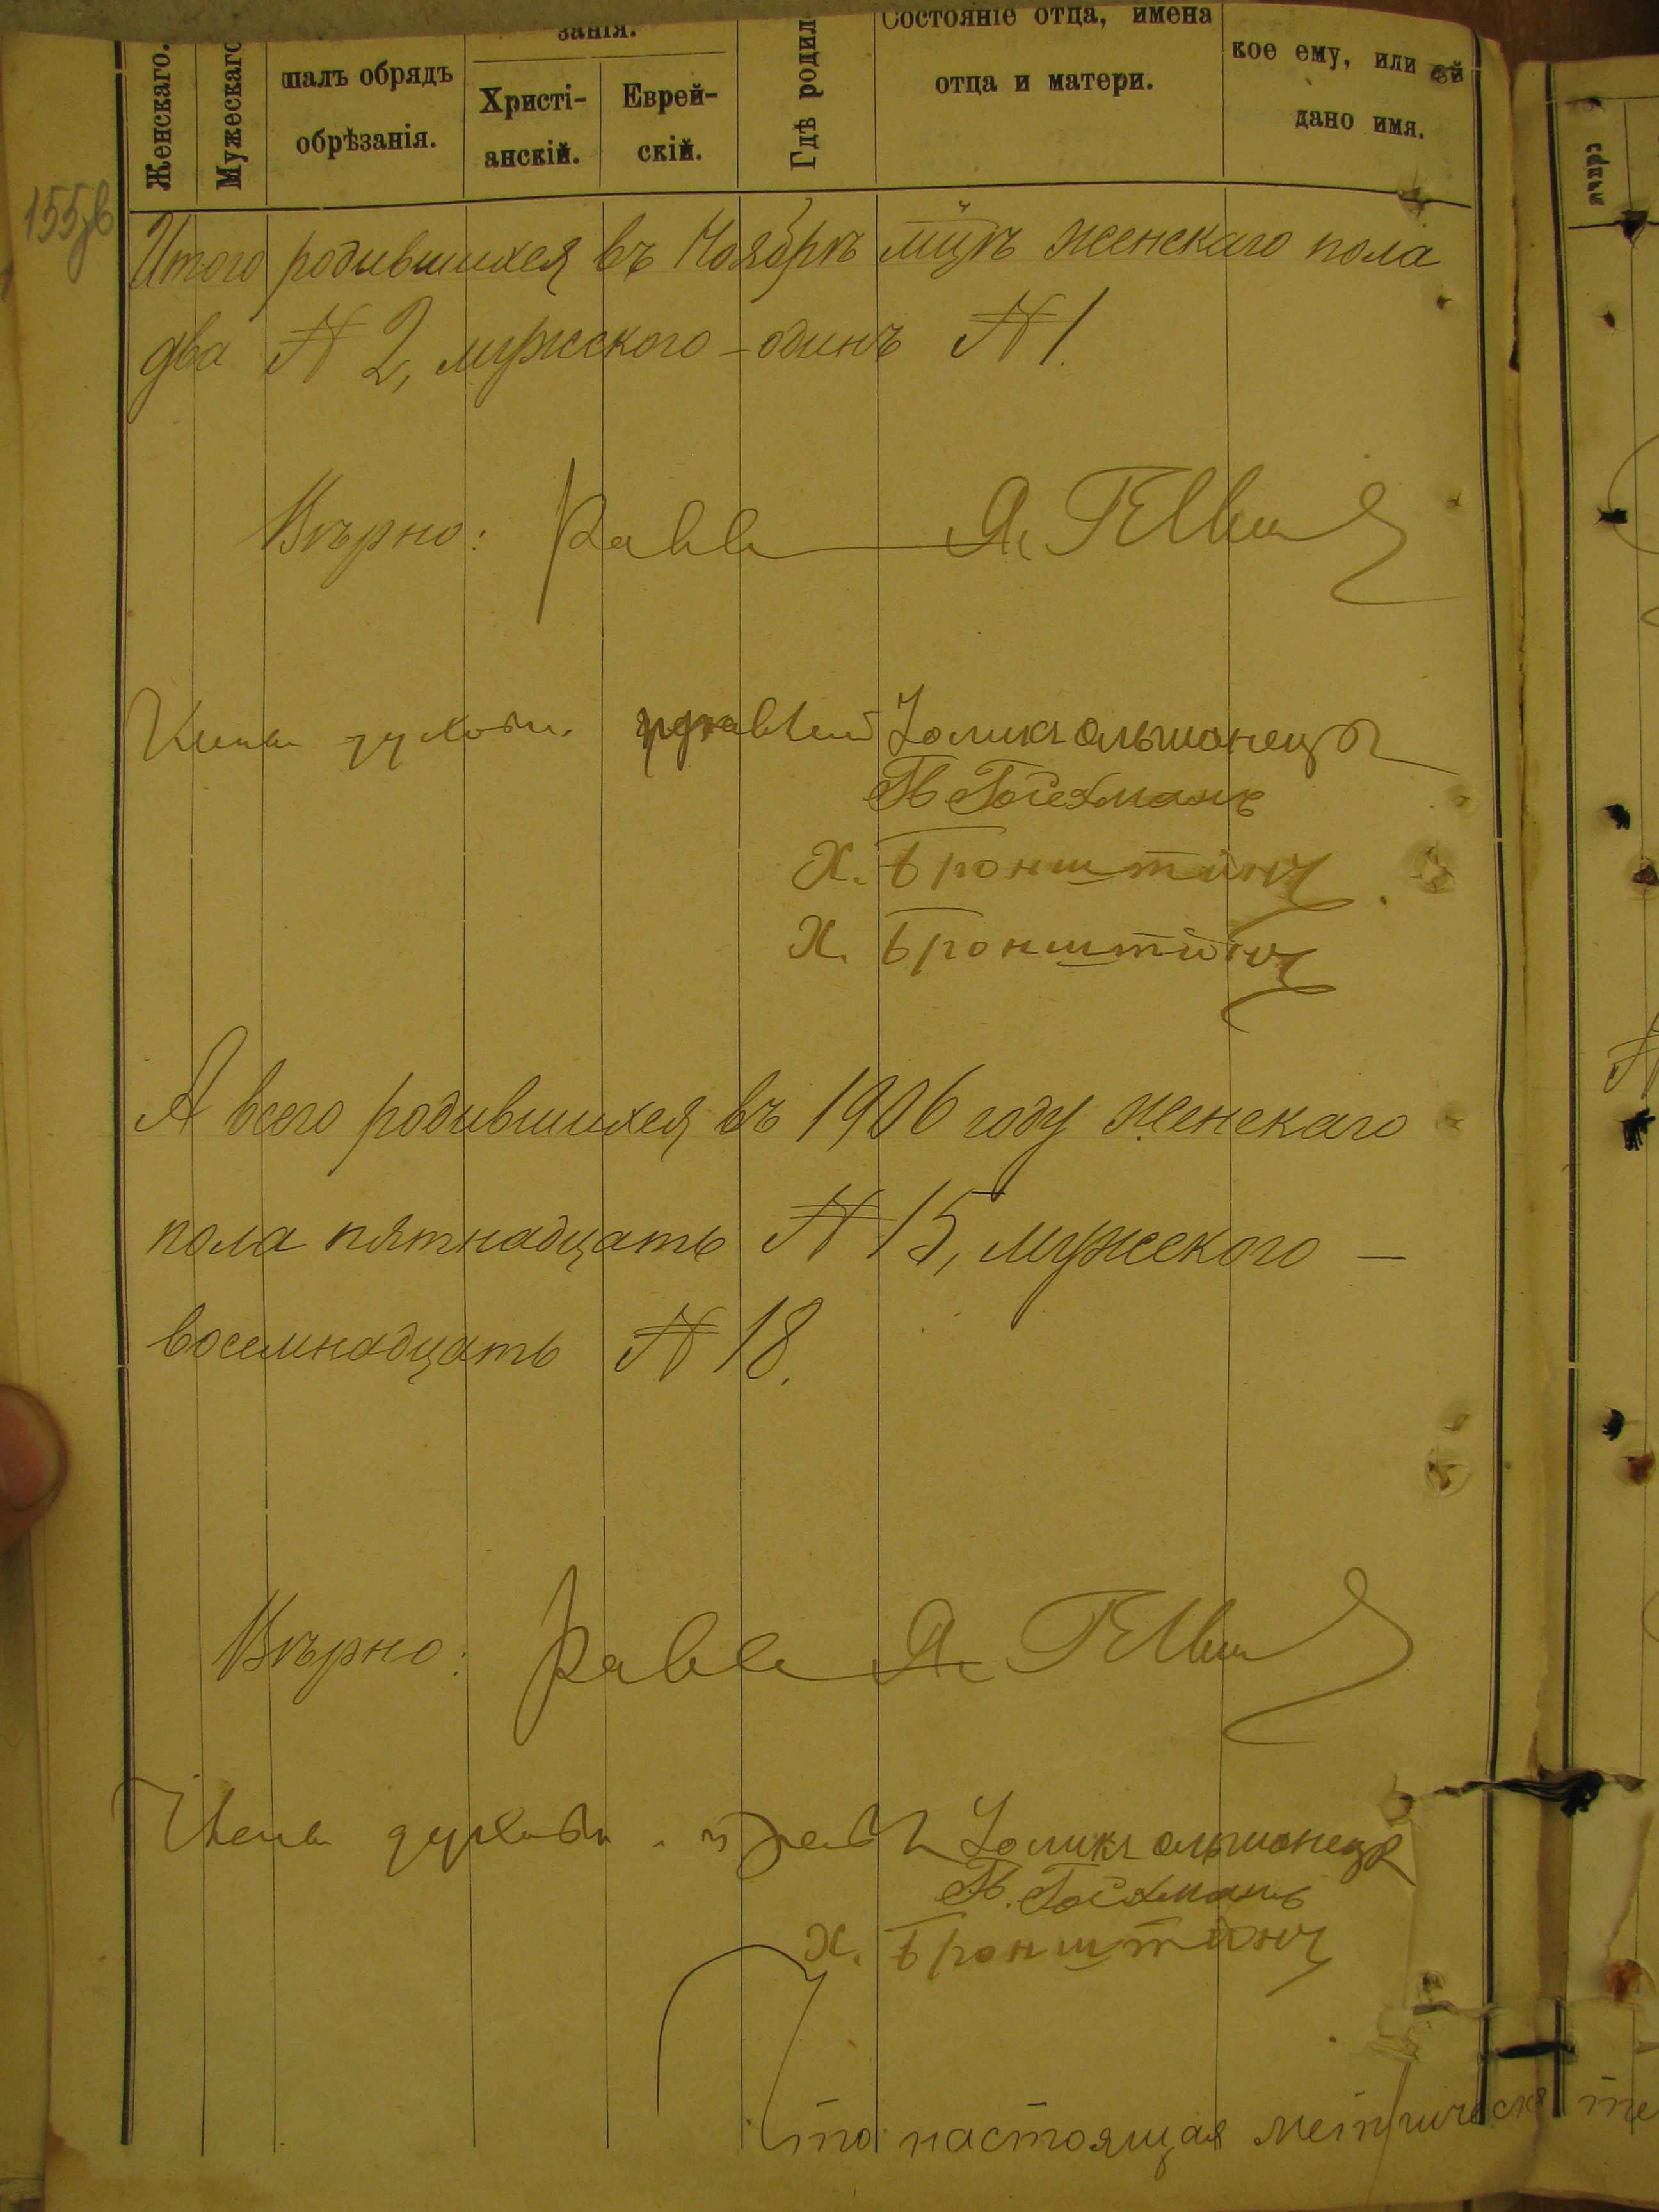 Женскаго.
Мужескаго
шалъ обрядъ
обрѣзанія.
занія.
Христі-
анскій.
Еврей-
скій.
Гдѣ родил
Состояніе отца, имена
отца и матери.
кое ему, или ей
дано имя.
155зв
Итого родившихся въ Ноябрѣ мцѣ женскаго пола
два № 2, мужского – одинъ № 1.
Вѣрно: Равв
Члены духовн.
Гойхманъ
Х. Бронштейнъ
Х. Бронштейнъ
А всего родившихся въ 1906 году женскаго
пола пятнадцать № 15, мужского –
восемнадцать № 18.
Вѣрно: Равв
Члены духовн.
Гойхманъ
Х. Бронштейнъ
что настоящая метрическ